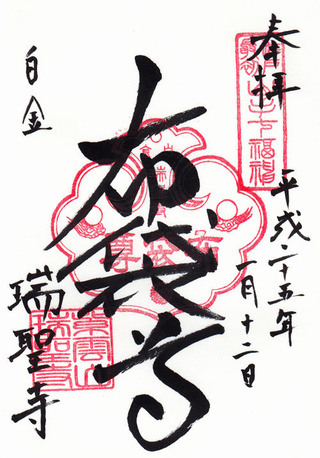 奉拝
平成二十五年
一月十二日
布袋尊
白金
瑞聖寺
布袋尊
紫雲山
瑞聖寺